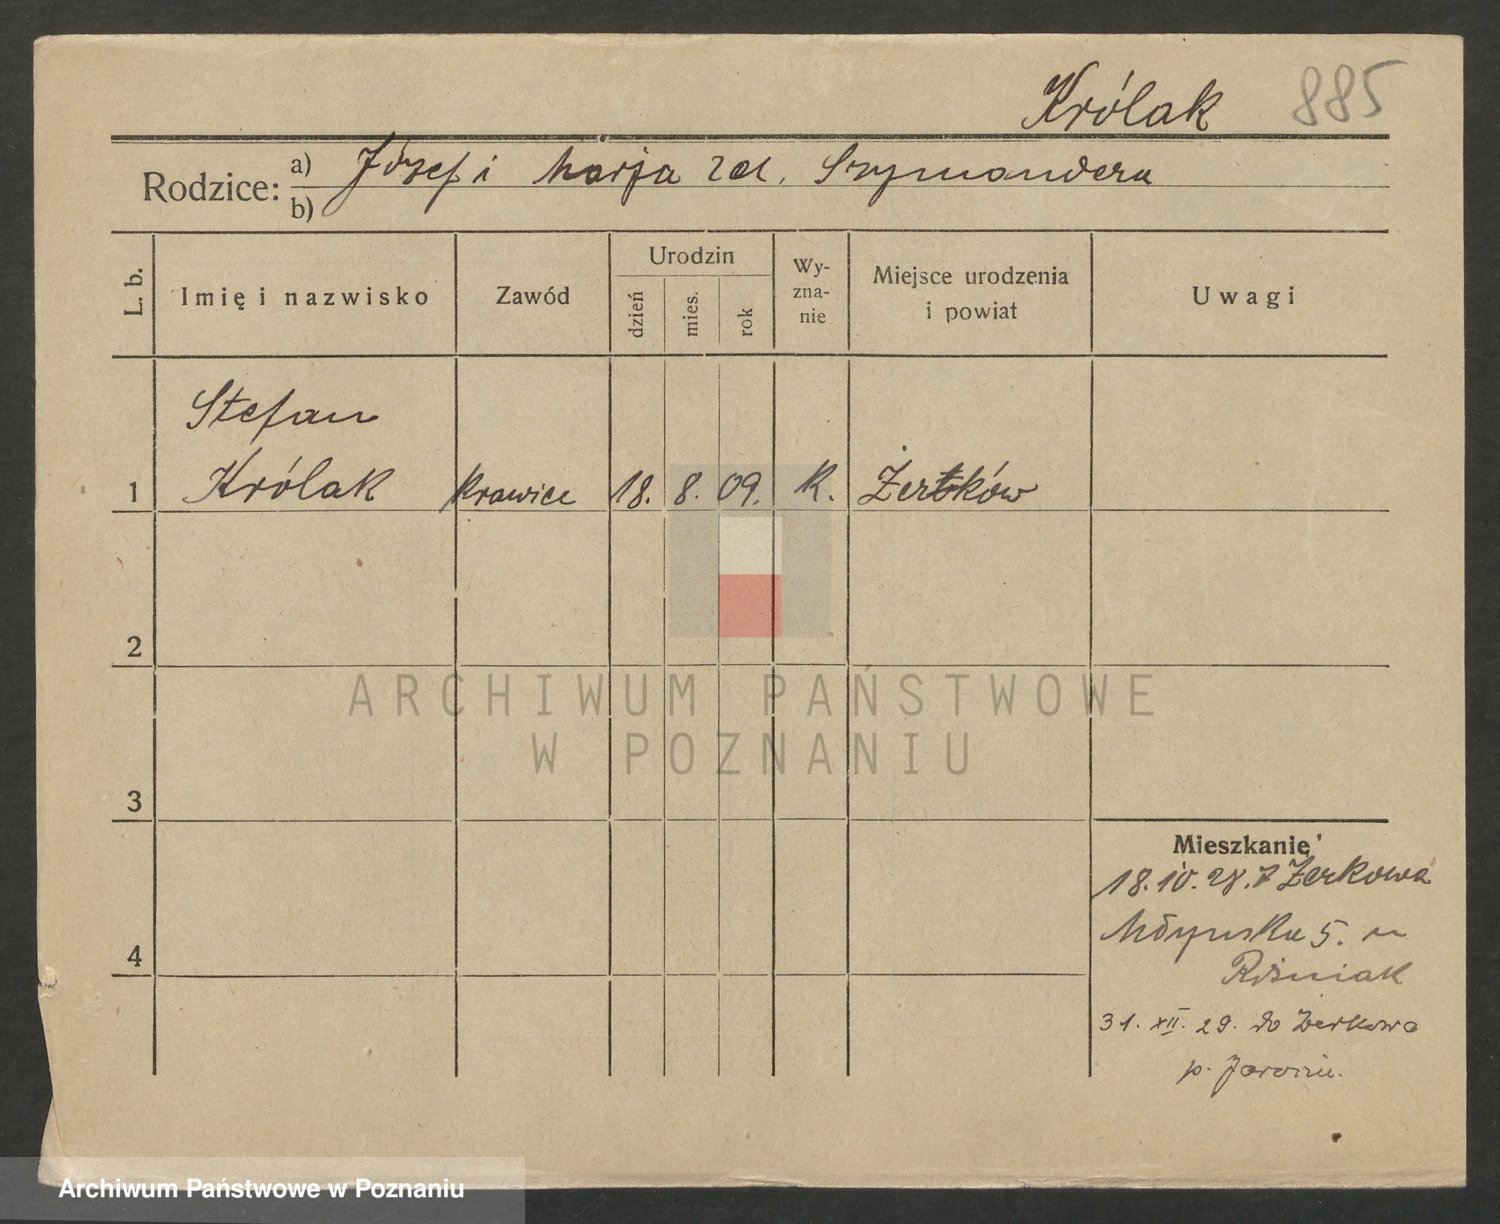 Królak 885
Rodzice: a) Józef i Marja zd. Szymandera
b)
L. b. Imię i nazwisko Zawód Urodzin dzień mies. rok Wy-zna-nie Miejsce urodzenia i powiat Uwagi
Stefan
1 Królak krawiec 18. 8. 09. K. Żerków
2
3
4
Mieszkanie
18. 10. 28. z Żerkowa
Młyńska 5. u
Roźniak
31. XII. 29. do Żerkowa
p. Jarocin.
ARCHIWUM PAŃSTWOWE
W POZNANIU
Archiwum Państwowe w Poznaniu